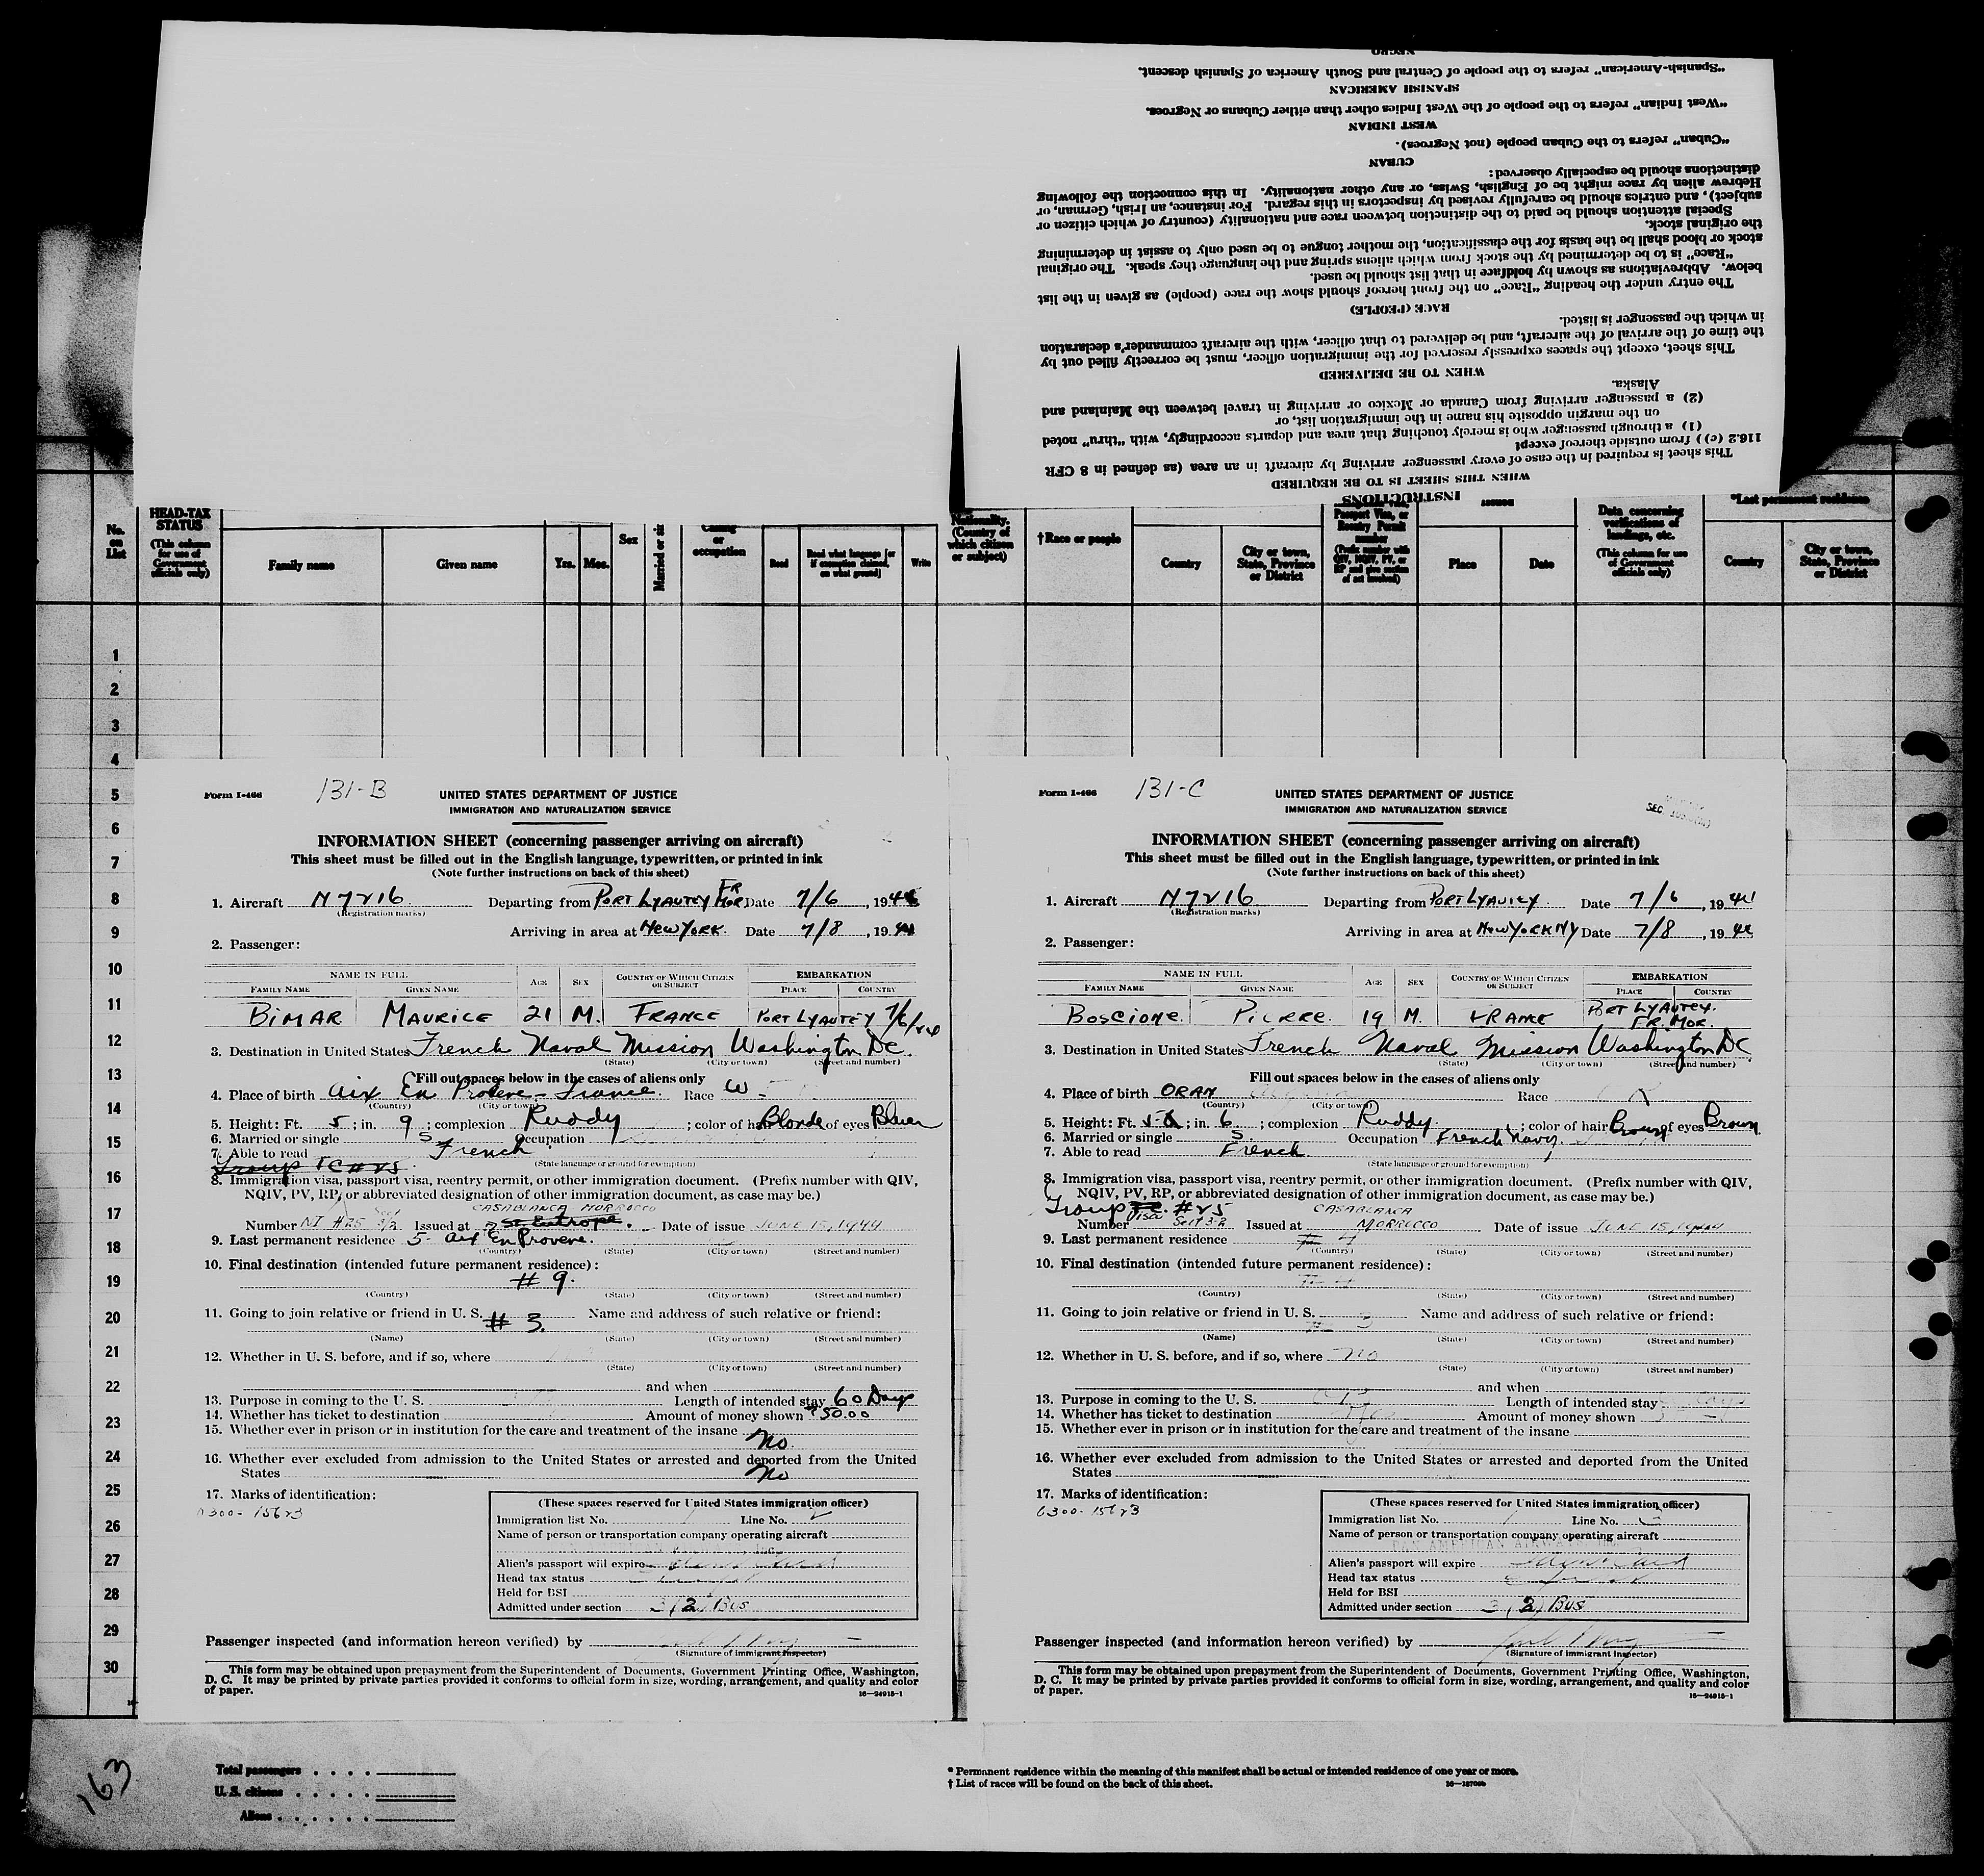 INSTRUCTIONS
WHEN THIS SHEET IS TO BE REQUIRED
This sheet is required in the case of every passenger arriving by aircraft in an area (as defined in 8 CFR
116.2 (c)) from outside thereof except
(1) a through passenger who is merely touching that area and departs accordingly, with "thru" noted
on the margin opposite his name in the immigration list, or
(2) a passenger arriving from Canada or Mexico or arriving in travel between the Mainland and
Alaska.
WHEN TO BE DELIVERED
This sheet, except the spaces expressly reserved for the immigration officer, must be correctly filled out by
the time of the arrival of the aircraft, and be delivered to that officer, with the aircraft commander's declaration
in which the passenger is listed.
RACE (PEOPLE)
The entry under the heading "Race" on the front hereof should show the race (people) as given in the list
below. Abbreviations as shown by boldface in that list should be used.
"Race" is to be determined by the stock from which aliens spring and the language they speak. The original
stock or blood shall be the basis for the classification, the mother tongue to be used only to assist in determining
the original stock.
Special attention should be paid to the distinction between race and nationality (country of which citizen or
subject), and entries should be carefully revised by inspectors in this regard. For instance, an Irish, German, or
Hebrew alien by race might be of English, Swiss, or any other nationality. In this connection the following
distinctions should be especially observed:
CUBAN
"Cuban" refers to the Cuban people (not Negroes).
WEST INDIAN
"West Indian" refers to the people of the West Indies other than either Cubans or Negroes.
SPANISH AMERICAN
"Spanish-American" refers to the people of Central and South America of Spanish descent.
NEGRO
No. on List
HEAD-TAX STATUS
(This column for use of Government officials only)
Family name
Given name
Yrs. Mos.
Sex
Calling or occupation
Read
Read what language [or if exemption claimed, on what ground]
Write
Nationality. (Country of which citizen or subject)
†Race or people
Country
City or town, State, Province or District
Passport Visa, or Reentry Permit number
(Prefix number with QIV, NQIV, PV, or RP and give section of act involved)
Place
Date
Data concerning verifications of landings, etc.
(This column for use of Government officials only)
*Last permanent residence
Country
City or town, State, Province or District
1
2
3
4
5
6
7
8
9
10
11
12
13
14
15
16
17
18
19
20
21
22
23
24
25
26
27
28
29
30
Form I-466
131-B
UNITED STATES DEPARTMENT OF JUSTICE
IMMIGRATION AND NATURALIZATION SERVICE
INFORMATION SHEET (concerning passenger arriving on aircraft)
This sheet must be filled out in the English language, typewritten, or printed in ink
(Note further instructions on back of this sheet)
1. Aircraft N7V16 Departing from PORT LYAUTEY FR MOR. Date 7/6, 1944
(Registration marks)
Arriving in area at NEW YORK Date 7/8, 1944
2. Passenger:
NAME IN FULL AGE SEX COUNTRY OF WHICH CITIZEN OR SUBJECT EMBARKATION
FAMILY NAME GIVEN NAME PLACE COUNTRY
BIMAR MAURICE 21 M. FRANCE PORT LYAUTEY 7/6/44
3. Destination in United States French Naval Mission Washington DC.
(State) (City or town) (Street and number)
Fill out spaces below in the cases of aliens only
4. Place of birth Aix En Provene - France. Race W
(Country) (City or town)
5. Height: Ft. 5; in. 9; complexion Ruddy; color of hair Blonde of eyes Blue
6. Married or single S Occupation
7. Able to read French
(State language or ground for exemption)
Group TC #25
8. Immigration visa, passport visa, reentry permit, or other immigration document. (Prefix number with QIV,
NQIV, PV, RP, or abbreviated designation of other immigration document, as case may be.)
CASABLANCA MORROCCO
Number NI #25 3/2 Issued at St Entrope. Date of issue JUNE 15, 1944
9. Last permanent residence 5- Aix En Provene.
(Country) (State) (City or town) (Street and number)
10. Final destination (intended future permanent residence):
# 9.
(Country) (State) (City or town) (Street and number)
11. Going to join relative or friend in U. S. # 3. Name and address of such relative or friend:
(Name) (State) (City or town) (Street and number)
12. Whether in U. S. before, and if so, where
(State) (City or town) (Street and number)
and when
13. Purpose in coming to the U. S. Length of intended stay 60 Days
14. Whether has ticket to destination Amount of money shown $50.00
15. Whether ever in prison or in institution for the care and treatment of the insane
No.
16. Whether ever excluded from admission to the United States or arrested and deported from the United
States No
17. Marks of identification:
0300-15623
(These spaces reserved for United States immigration officer)
Immigration list No. 1 Line No. 2
Name of person or transportation company operating aircraft
Alien's passport will expire
Head tax status
Held for BSI
Admitted under section 3(2) Bus
Passenger inspected (and information hereon verified) by
(Signature of immigrant inspector)
This form may be obtained upon prepayment from the Superintendent of Documents, Government Printing Office, Washington,
D. C. It may be printed by private parties provided it conforms to official form in size, wording, arrangement, and quality and color
of paper.
16—24915-1
Form I-466
131-C
UNITED STATES DEPARTMENT OF JUSTICE
IMMIGRATION AND NATURALIZATION SERVICE
SEC
INFORMATION SHEET (concerning passenger arriving on aircraft)
This sheet must be filled out in the English language, typewritten, or printed in ink
(Note further instructions on back of this sheet)
1. Aircraft N7V16 Departing from PORT LYAUTEY Date 7/6, 1944
(Registration marks)
Arriving in area at NEW YORK NY Date 7/8, 1944
2. Passenger:
NAME IN FULL AGE SEX COUNTRY OF WHICH CITIZEN OR SUBJECT EMBARKATION
FAMILY NAME GIVEN NAME PLACE COUNTRY
BOSCIONE. PIERRE. 19 M. FRANCE PORT LYAUTEY. FR. MOR.
3. Destination in United States French Naval Mission Washington DC
(State) (City or town) (Street and number)
Fill out spaces below in the cases of aliens only
4. Place of birth ORAN Race
(Country) (City or town)
5. Height: Ft. 5; in. 6; complexion Ruddy; color of hair Brown of eyes Brown
6. Married or single S. Occupation French Navy.
7. Able to read French.
(State language or ground for exemption)
8. Immigration visa, passport visa, reentry permit, or other immigration document. (Prefix number with QIV,
NQIV, PV, RP, or abbreviated designation of other immigration document, as case may be.)
Group Visa #25 CASABLANCA
Number Sect 3-2 Issued at MORROCCO Date of issue JUNE 15, 1944
9. Last permanent residence # 4
(Country) (State) (City or town) (Street and number)
10. Final destination (intended future permanent residence):
# 4
(Country) (State) (City or town) (Street and number)
11. Going to join relative or friend in U. S. # 3 Name and address of such relative or friend:
(Name) (State) (City or town) (Street and number)
12. Whether in U. S. before, and if so, where No
(State) (City or town) (Street and number)
and when
13. Purpose in coming to the U. S. Length of intended stay
14. Whether has ticket to destination Yes Amount of money shown
15. Whether ever in prison or in institution for the care and treatment of the insane
16. Whether ever excluded from admission to the United States or arrested and deported from the United
States
17. Marks of identification:
6300-15623
(These spaces reserved for United States immigration officer)
Immigration list No. 1 Line No. 3
Name of person or transportation company operating aircraft
PAN AMERICAN AIRWAYS
Alien's passport will expire
Head tax status
Held for BSI
Admitted under section 3(2) Bus
Passenger inspected (and information hereon verified) by
(Signature of immigrant inspector)
This form may be obtained upon prepayment from the Superintendent of Documents, Government Printing Office, Washington,
D. C. It may be printed by private parties provided it conforms to official form in size, wording, arrangement, and quality and color
of paper.
16—24915-1
163
Total passengers
U. S. citizens
Aliens
* Permanent residence within the meaning of this manifest shall be actual or intended residence of one year or more.
† List of races will be found on the back of this sheet.